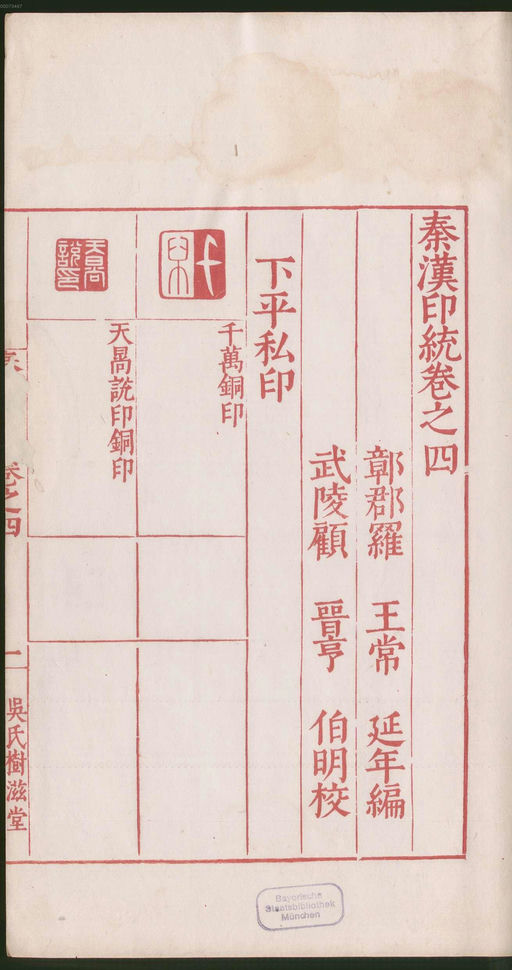 秦漢印統卷之四
鄣郡羅 王常 延年編
武陵顧 晉亨 伯明校
下平私印
千萬銅印
天晑說印銅印
卷之四
一
吳氏樹滋堂
Bayerische
Staatsbibliothek
München
00073447